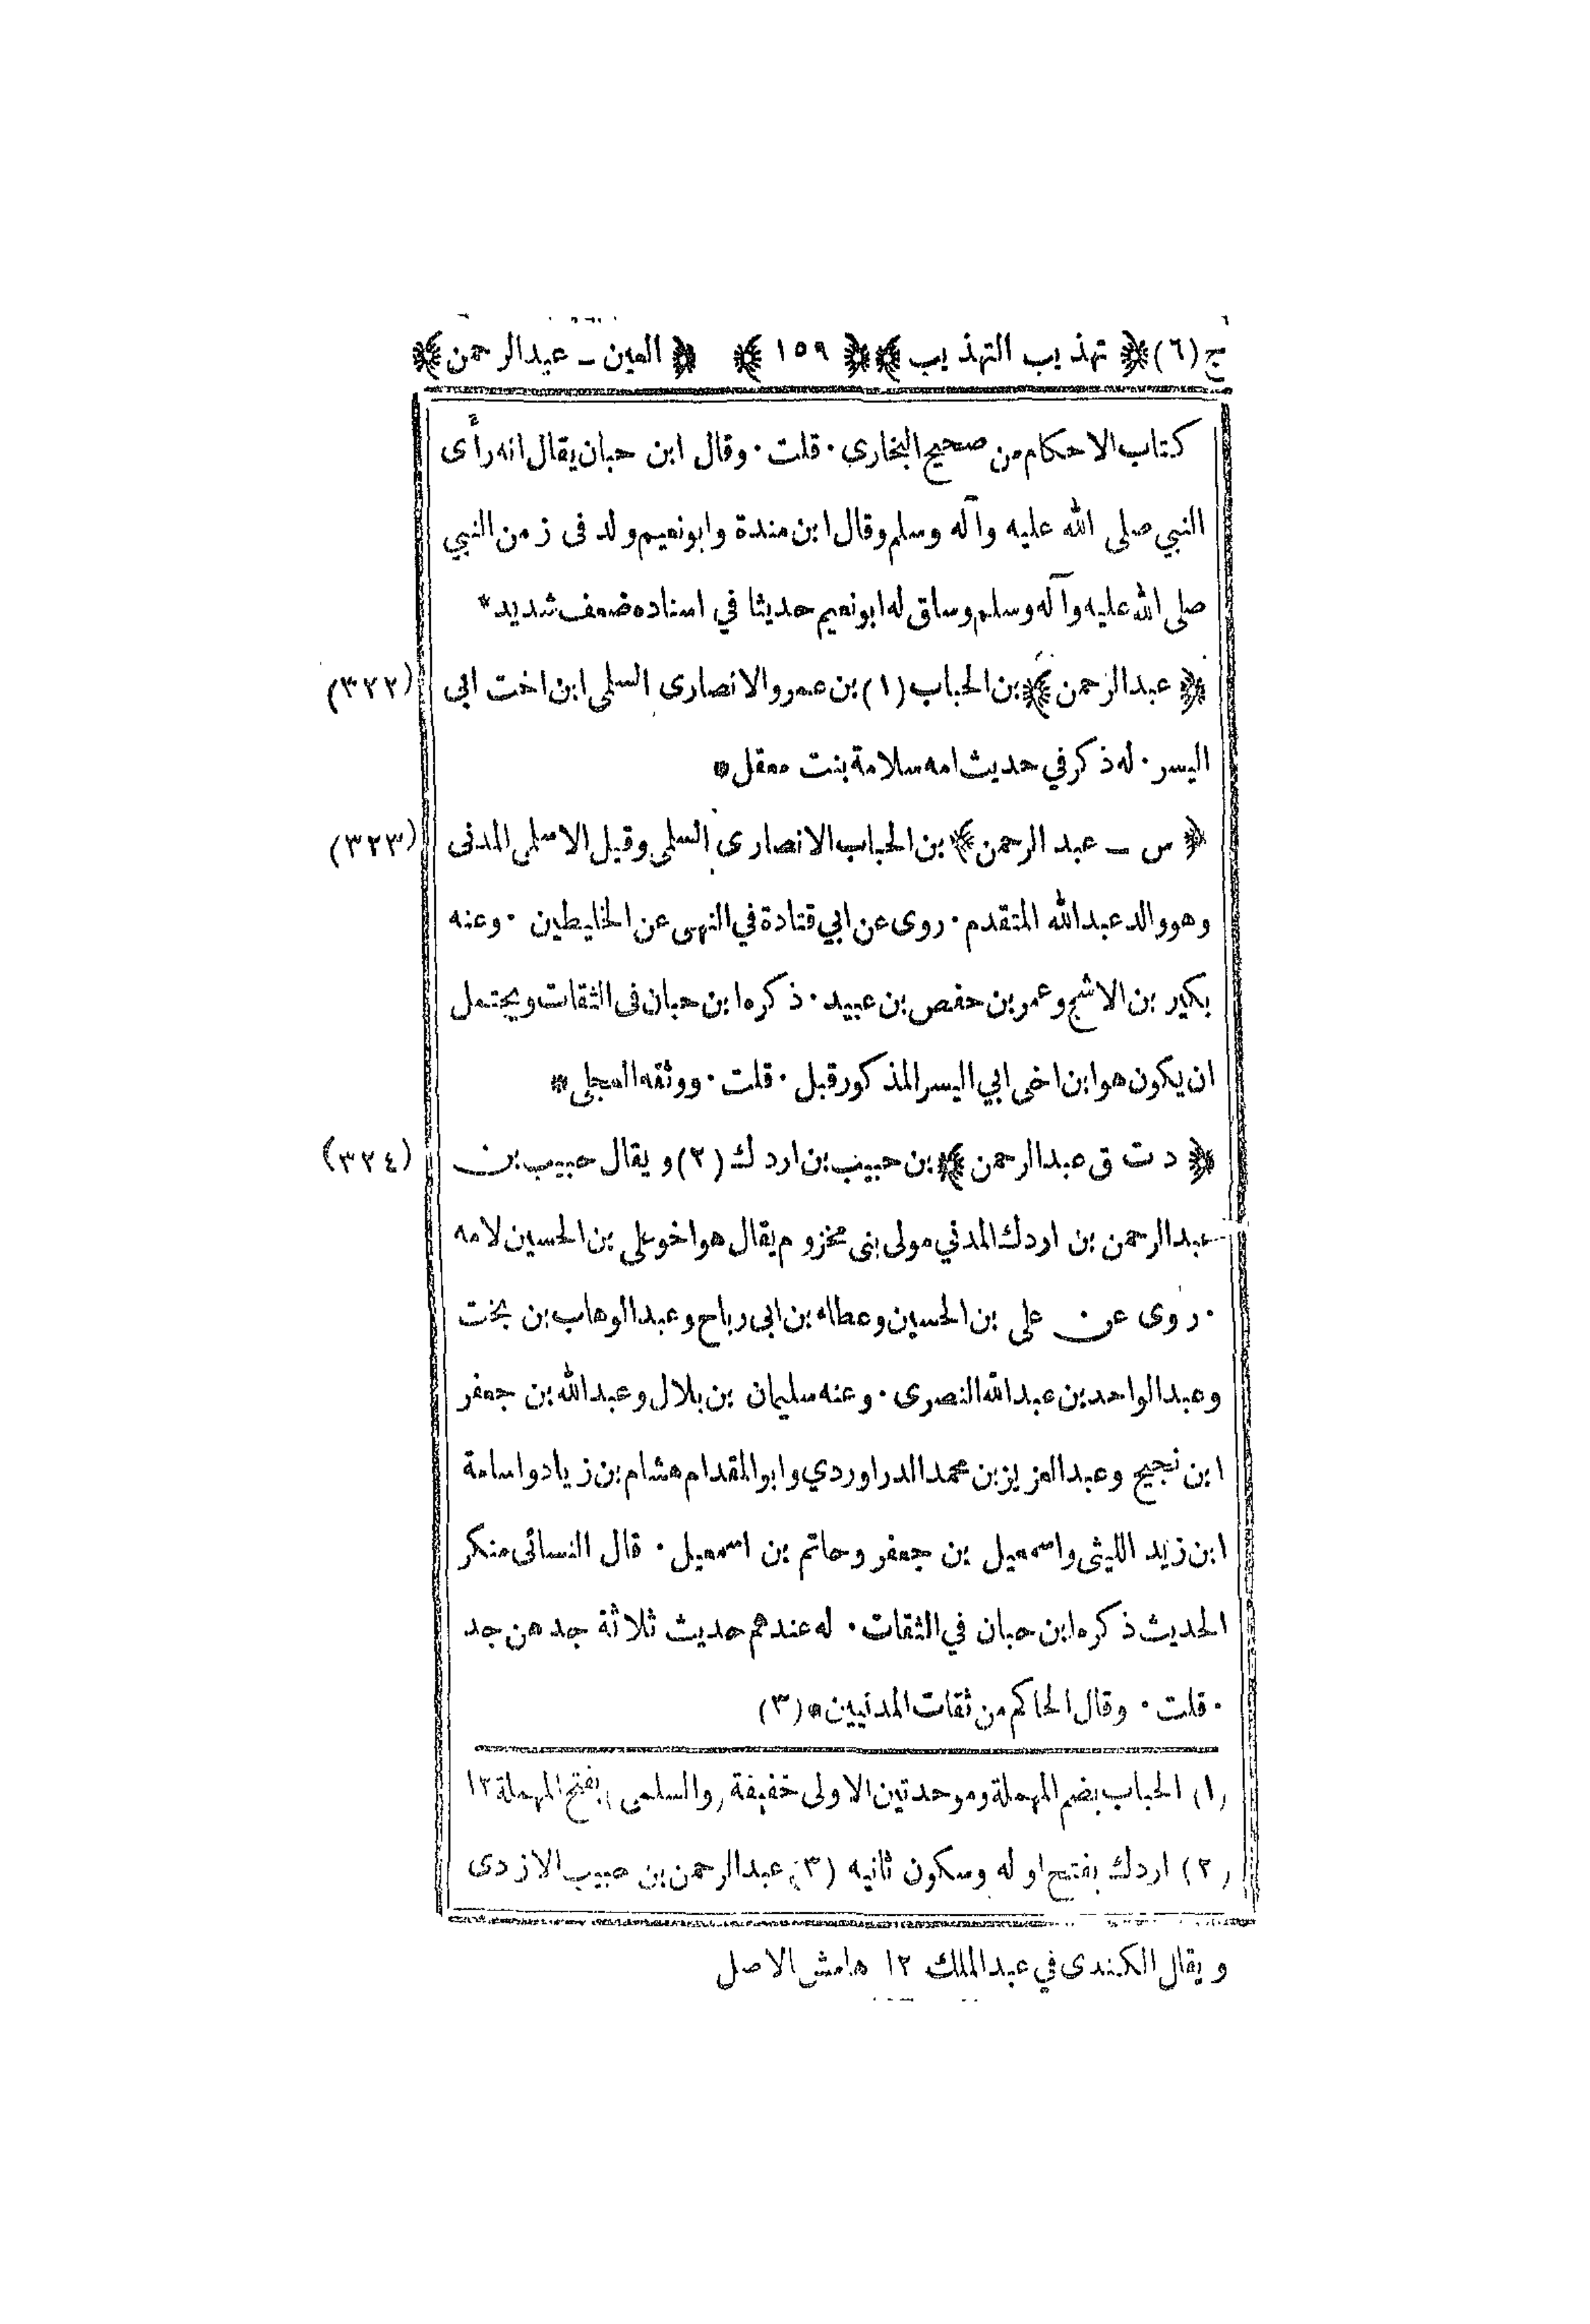 ج (٦) ﴿ تهذيب التهذيب ﴾ ﴿ ١٥٩ ﴾ ﴿ العين ـ عبدالرحمن ﴾
كتاب الاحكام من صحيح البخاري ٠ قلت ٠ وقال ابن حبان يقال انه رأى
النبي صلى الله عليه وآله وسلم وقال ابن مندة وابونعيم ولد فى زمن النبي
صلى الله عليه وآله وسلم وساق له ابونعيم حديثا في اسناده ضعف شديد *
﴿ عبدالرحمن ﴾ بن الحباب (١) بن عمرو الانصارى السلمى ابن اخت ابى (٣٢٢)
اليسر ٠ له ذكر في حديث امه سلامة بنت معقل *
﴿ س ـ عبد الرحمن ﴾ بن الحباب الانصارى السلمى وقيل الاسلمى المدنى (٣٢٣)
وهو والد عبدالله المتقدم ٠ روى عن ابي قتادة في النهى عن الخليطين ٠ وعنه
بكير بن الاشج وعمر بن حفص بن عبيد ٠ ذكره ابن حبان فى الثقات ويحتمل
ان يكون هو ابن اخى ابي اليسر المذكور قبل ٠ قلت ٠ ووثقه العجلى *
﴿ د ت ق عبدالرحمن ﴾ بن حبيب بن اردك (٢) ويقال حبيب بن (٣٢٤)
عبدالرحمن بن اردك المدني مولى بنى مخزوم يقال هو اخو على بن الحسين لامه
٠ روى عن على بن الحسين وعطاء بن ابى رباح وعبدالوهاب بن بخت
وعبدالواحد بن عبدالله النصرى ٠ وعنه سليمان بن بلال وعبدالله بن جعفر
ابن نجيح وعبدالعزيز بن محمد الدراوردي وابوالمقدام هشام بن زياد واسامة
ابن زيد الليثى واسمعيل بن جعفر وحاتم بن اسمعيل ٠ قال النسائى منكر
الحديث ذكره ابن حبان في الثقات ٠ له عندهم حديث ثلاثة جدهن جد
٠ قلت ٠ وقال الحاكم من ثقات المدنيين * (٣)
(١) الحباب بضم المهملة وموحدتين الاولى خفيفة (والسلمى) بفتح المهملة ١٢
(٢) اردك بفتح اوله وسكون ثانيه (٣) عبدالرحمن بن حبيب الازدى
ويقال الكندى في عبدالملك ١٢ هامش الاصل